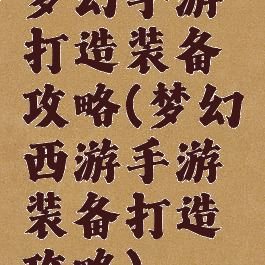 梦幻手游
打造装备
攻略(梦幻
西游手游
装备打造
攻略)